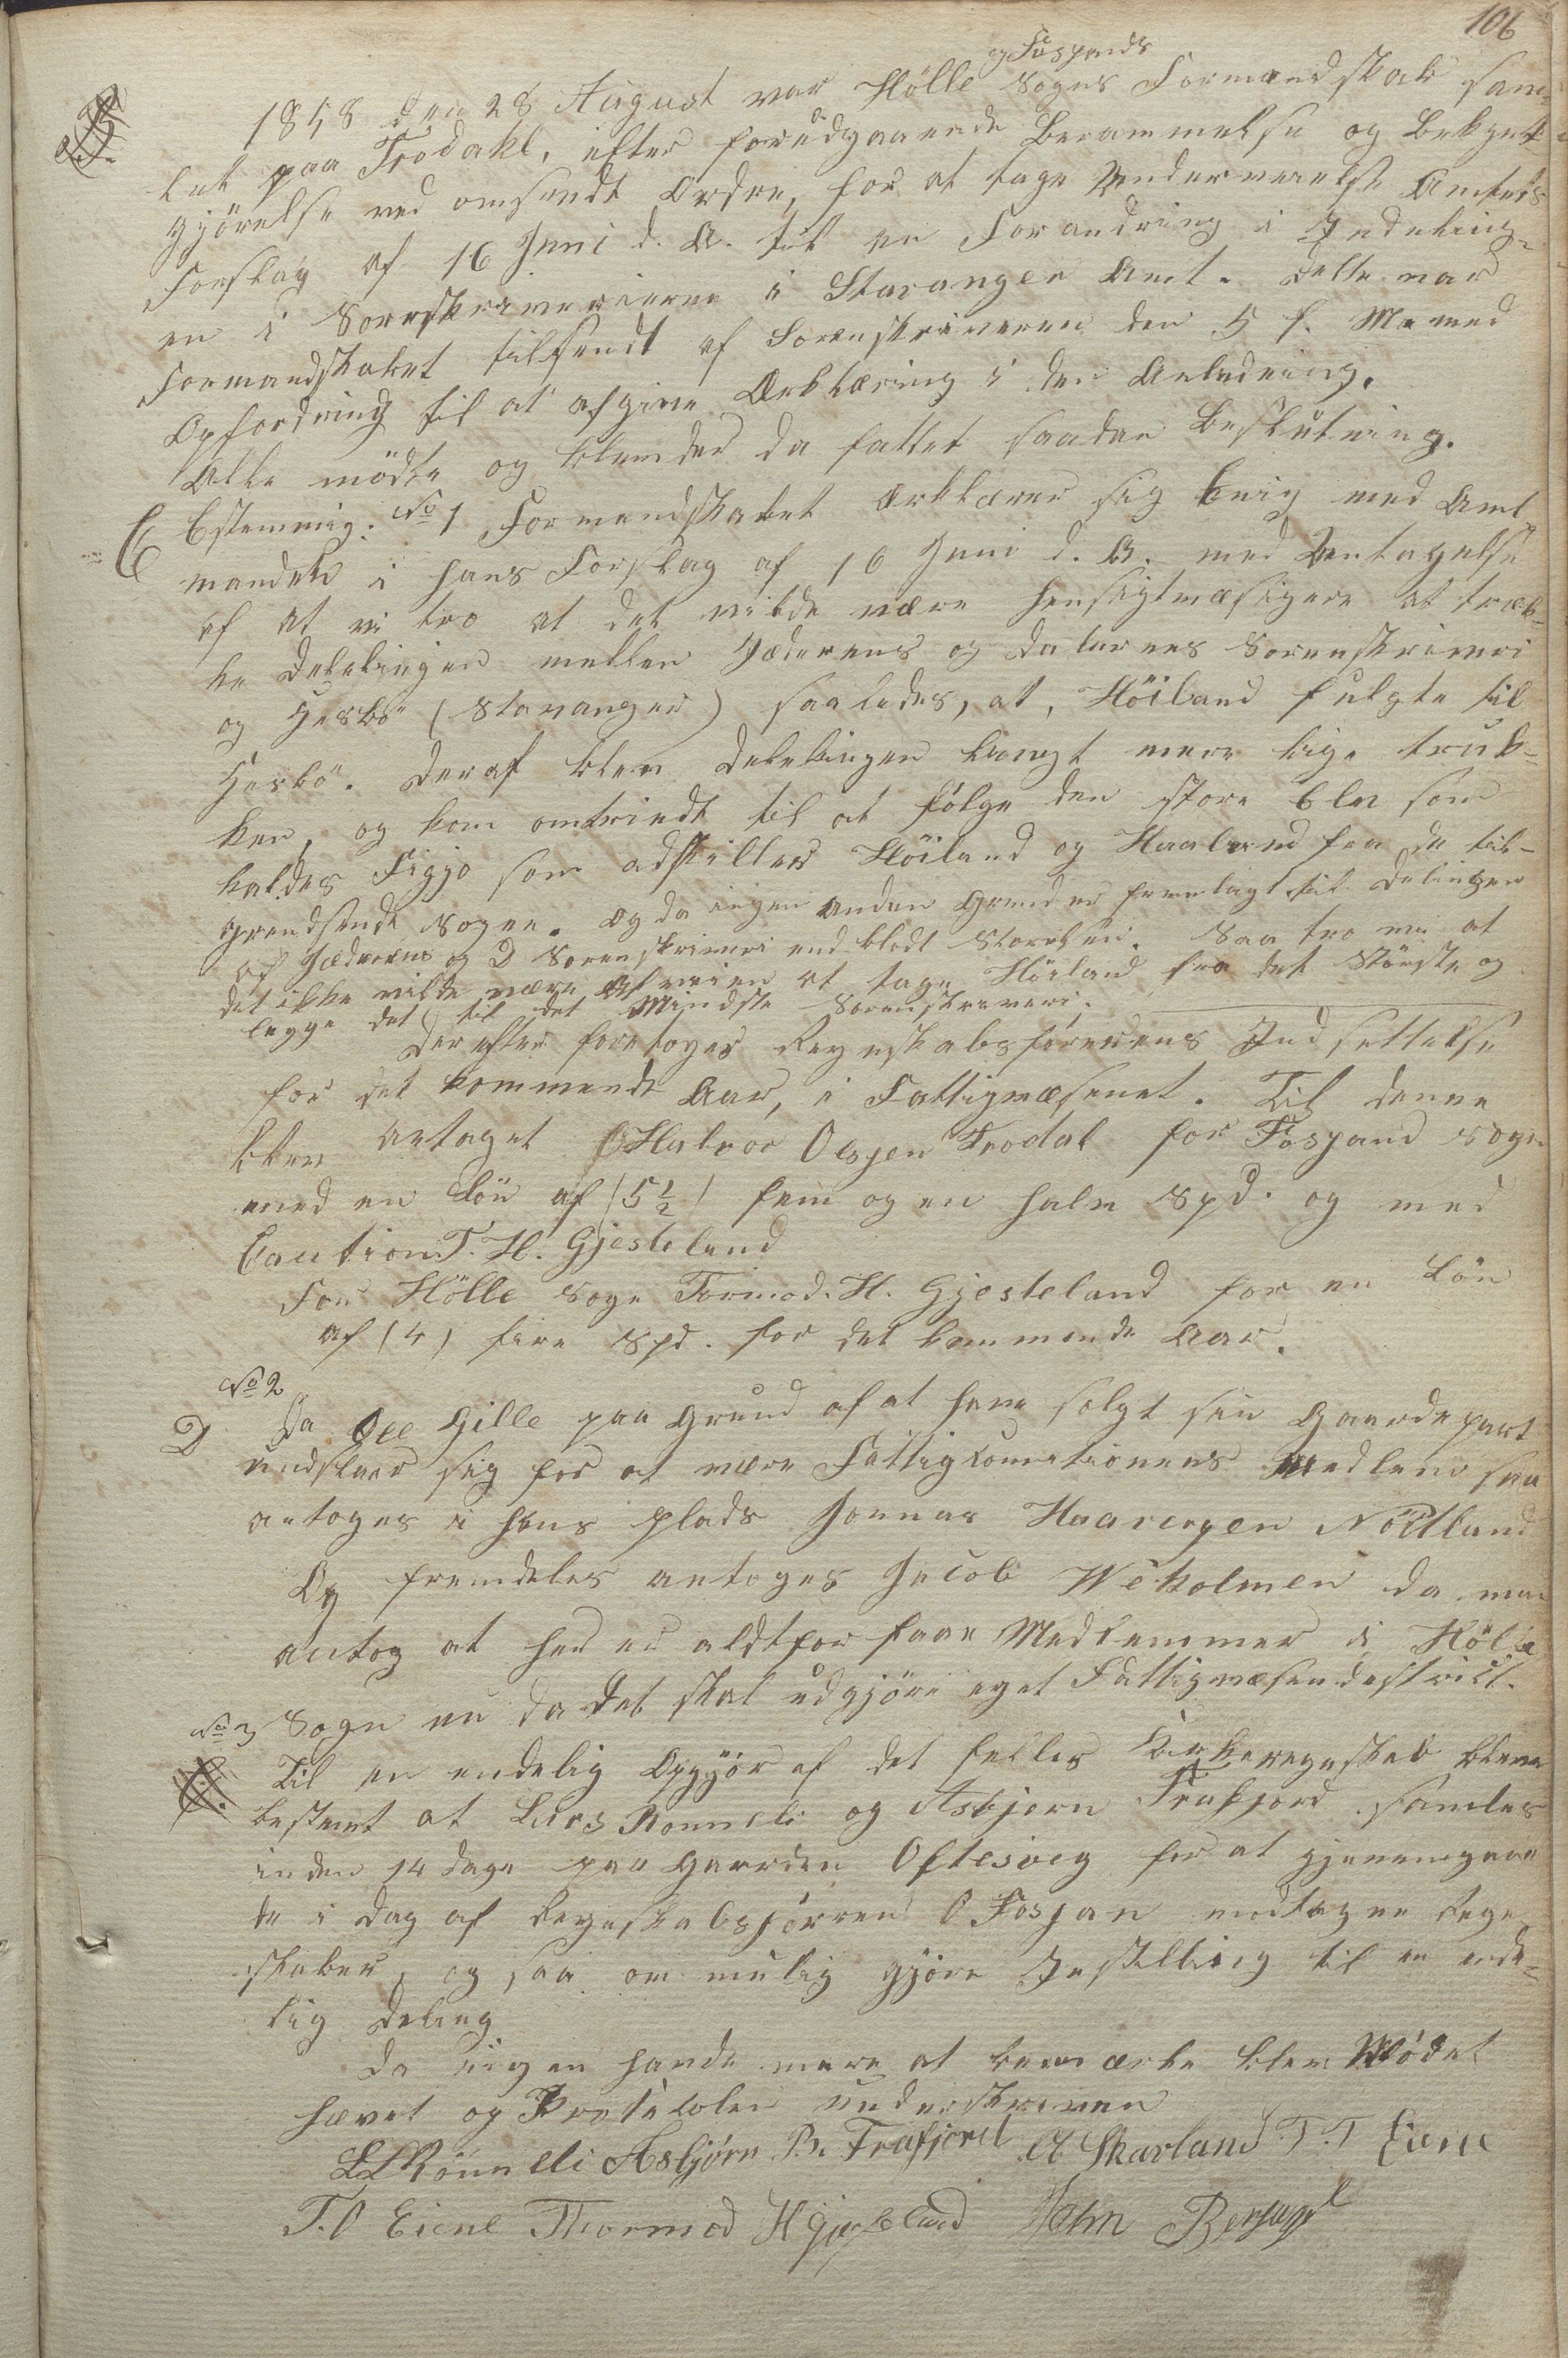 106
og Fospands
1858 den 28 August var Hölle Sogns Formandskab sam¬
let paa Trodahl, efter forudgaaende Berammelse og Bekjent¬
gjörelse ved omsendt Ordre, for at tage Under Amtets
Forslag af 16 Juni d. A. til en Forandring i Indeling¬
en i Sorrskriverierne i Stavanger Amt. Dette var
Formandskabet tilsendt af Sorenskriveren den 5 f. M. med
Opfordring til at afgive Erklæring i den Anledning.
Alle mödte og blev der da fattet saadan Beslutning.
C Bstemmig: No 1 Formandskabet Erklærer sig Enig med Amt¬
manden i hans Forslag af 16 Juni d. A. med Untagelse
af at vi tro at det vilde være hensigtmæsigere at træk¬
ke Delelingen mellem Jæderens og Dalernes Sorenskriveri
og Hesbö (Stavanger) saaledes, at, Höiland fulgte til
Hesbö. Deraf blev Delelingen langt mere lige truk¬
ken, og kom omtrindt til at fölge den store Elv som
kaldes Figjo som adskiller Höiland og Haaland fra de til¬
grendsende Sogne. Og da ingen anden Grund er fremlagt til Delingen
af Jæderens og D Sorenskriveri end blodt Storelsen. Saa tro vi at
det ikke vilde være af veien at tage Höiland fra det Störste og
legge det til det Mindste Sorenskriveri.
Derefter foretoges Regnskabsförerens Indsettelse
for det kommende Aar, i Fattigvæsenet. Til denne
blev antaget Halvor Olsen Trodal for Fospand Sogn
med en Lön af (5½) fem og en halv Spd. og med
Caution T. H. Gjesteland
For Hölle Sogn Tormod. H. Gjesteland for en Lön
af (4) fire Spd. for det kommende Aar.
No 2
D Da Ole Gille paa Grund af at have solgt sin Gaardepart
undslaar sig for at være Fattigkomitionens Medlem saa
antoges i hans plads Jonnas Haavorsen Nödland
Og fremdeles antoges Jacob Weholmen da man
antog at her er aldtfor faae Medlemmer i Hölle
No 3 Sogn nu da det skal udgjöre eget Fattigvæsendestrikt.
Til en endelig Opgjör af det felles Kirkeregnskab blev
bestemt at Lars Rönneli og Asbjorn Frafjord samles
inden 14 Dage paa Gaarden Oftesvig for at gjennemgaae
de i Dag af Regnskabsförren O Fosjan modtagne Regn¬
skaber, og saa om mulig gjöre Instilling til en ende¬
lig Deling
Da ingen havde mere at bemærke blev Mödet
hævet og Protokolen underskreven
LL Rönneli Asbjörn B. Frafjord A Skarland T. T Eiene
T. O Eiene Thormod H Gjesteland John Bersagel